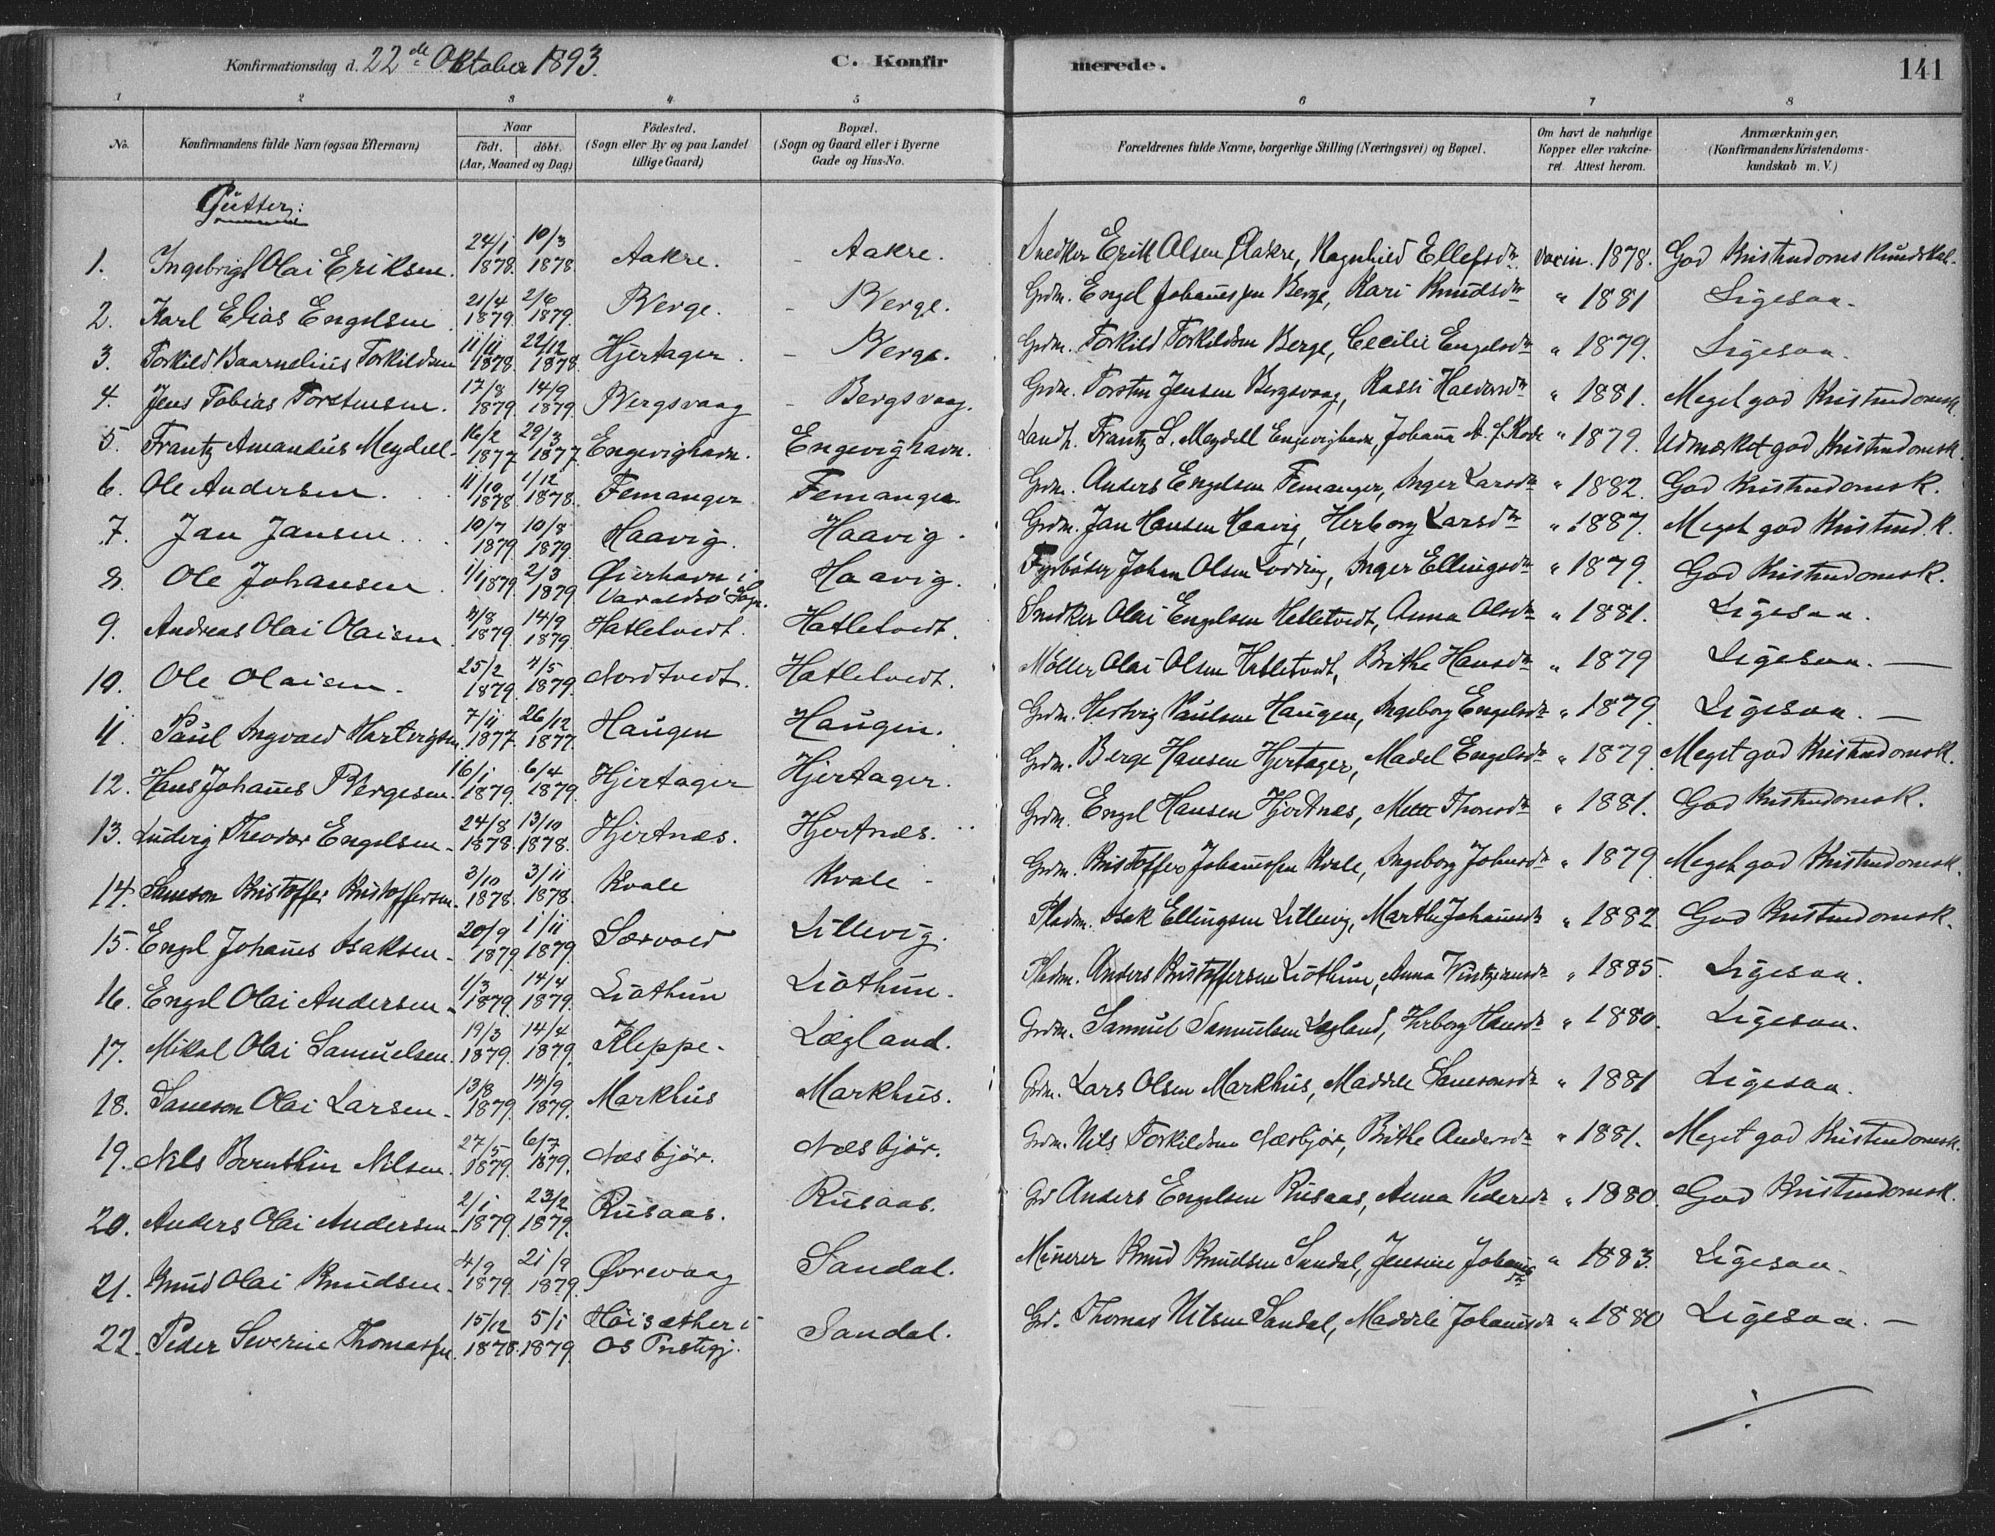 Konfirmationsdag d. 22de Oktober 1893. C. Konfirmerede. 141
1 2 3 4 5 6 7 8
No. Konfirmandens fulde Navn (ogsaa Efternavn) Naar födt. döbt. (Aar, Maaned og Dag) Födested. (Sogn eller By og paa Landet tillige Gaard) Bopæl. (Sogn og Gaard eller i Byerne Gade og Hus-No. Forældrenes fulde Navne, borgerlige Stilling (Næringsvei) og Bopæl. Om havt de naturlige Kopper eller vakcineret. Attest herom. Anmærkninger, (Konfirmandens Kristendomskundskab m. V.)
Gutter:
1. Ingebrigt Olai Eriksen. 24/1 1878. 10/3 1878. Aakre. - Aakre. Snedker Erik Olsen Aakre, Ragnhild Ellefsdtr vacin. 1878. God Kristendomskundskab.
2. Karl Elias Engelsen. 21/4 1879. 2/6 1879. Berge. - Berge. Grdm. Engel Johannessen Berge, Kari Knudsdtr " 1881 Ligesaa.
3. Torkild Baarnelius Torkildsen 11/11 1878. 22/12 1878. Hjertager. - Berge. Grdm. Torkild Torkildsen Berge, Cecilie Engelsdtr " 1879. Ligesaa.
4. Jens Tobias Torstensen. 17/8 1879. 14/9 1879. Bergsvaag - Bergsvaag. Grdm. Torsten Jensen Bergsvaag, Rassi Haldorsdtr " 1881. Meget god Kristendomsk.
5. Frantz Amandus Meydell. 16/2 1877 29/3 1877. Engevighavn. Engevighavn. Landh. Frantz L. Meydell Engevighavn, Johanna A. f. Kode " 1879. Udmærket god Kristendomsk.
6. Ole Andersen. 11/10 1878 1/12 1878. Femanger Femanger Grdm. Anders Engelsen Femanger, Inger Larsdtr " 1882. God Kristendomsk.
7. Jan Jansen. 10/7 1879 10/8 1879. Haavig. Haavig. Grdm. Jan Hansen Haavig, Herborg Larsdtr " 1887. Meget god Kristend.k.
8. Ole Johansen. 1/1 1879. 2/3 1879 Øierhavn i Varaldsö Sogn. Haavig. Fyrböter Johan Olsen, Inger Ellingsdtr " 1879. God Kristendomsk.
9. Andreas Olai Olaisen 7/8 1879. 14/9 1879. Hatletvedt. Hatletvedt. Snedker Olai Engelsen Hatletvedt, Anna Olsdtr " 1881. Ligesaa.
10. Ole Olaisen. 25/2 1879. 4/5 1879. Nordtvedt. Hatletvedt. Möller Olai Olsen Hatletvedt, Brithe Hansdtr " 1879 Ligesaa. —
11. Paul Ingvald Hartvigsen. 7/11 1877. 26/12 1877. Haugen Haugen. Grdm. Hertvig Paulsen Haugen, Ingeborg Engelsdtr " 1879. Ligesaa. —
12. Hans Johannes Bergesen. 16/1 1879. 6/4 1879. Hjertager Hjertager. Grdm. Berge Hansen Hjertager, Madel Engelsdtr " 1879. Meget god Kristendomsk.
13. Ludvig Theodor Engelsen. 24/8 1878. 13/10 1878. Hjertnæs. Hjertnæs. Grdm. Engel Hansen Hjertnæs, Mette Thonsdtr " 1881. God Kristendomsk.
14. Samson Kristoffer Kristoffersen. 3/10 1878. 3/11 1878. Kvale Kvale - Grdm. Kristoffer Johannessen Kvale, Ingeborg Johnsdtr " 1879. Meget god Kristendomsk.
15. Engel Johannes Isaksen. 20/9 1879. 1/11 1879. Særvold Lillevig. Pladsm. Isak Ellingsen Lillevig, Marthe Johannesdtr " 1882. God Kristendomsk.
16. Engel Olai Andersen. 1/3 1879. 14/4 1879. Liothun Liothun. Pladsm. Anders Kristoffersen Liothun, Anna " 1885. Ligesaa.
17. Mikal Olai Samuelsen. 19/3 1879. 14/4 1879. Kleppe. Lægland. Grdm. Samuel Samuelsen Lægland, Herborg Hansdtr " 1880. Ligesaa.
18. Samson Olai Larsen. 13/8 1879. 14/9 1879. Markhus Markhus. Grdm. Lars Olsen Markhus, Maddele Samsonsdtr " 1881 Ligesaa.
19. Nils Bernthin Nilsen. 27/5 1879. 6/7 1879. Næsbjör. Næsbjör. Grdm. Nils Torkildsen Næsbjör, Brithe Andersdtr " 1881. Meget god Kristendomsk.
20. Anders Olai Andersen. 2/1 1879. 23/2 1879. Rusaas. Rusaas. Grd Anders Engelsen Rusaas, Anna Pedersdtr " 1880. God Kristendomsk.
21. Knud Olai Knudsen. 4/9 1879. 21/9 1879. Øvrevaag Sandal. Minerer Knud Knudsen Sandal, Jensine Johannesdtr " 1883. Ligesaa.
22. Peder Severin Thomassen. 15/12 1878. 5/1 1879. Höisæther i Os Prestegj. Sandal. Grd. Thomas Nilsen Sandal, Maddele Johannesdtr " 1880 Ligesaa. —